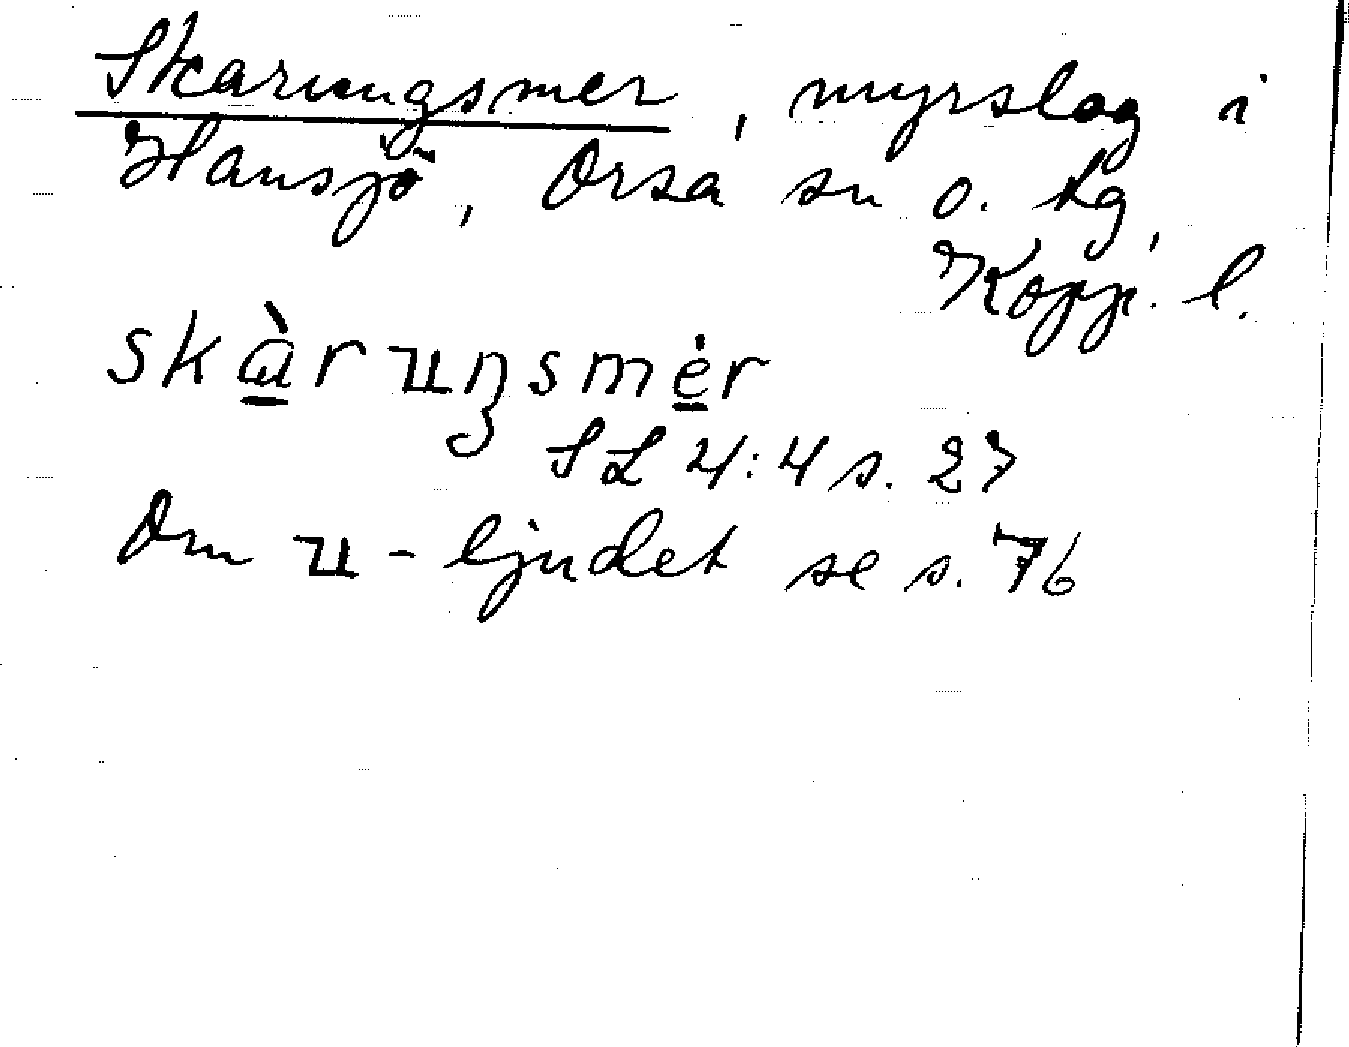 Skarungsmer, myrslog i
Hansjö, Orsa sn o. tg,
Kopp. l.
skàruŋsmėr
SL 4:4 s. 27
Om u-ljudet se s. 76